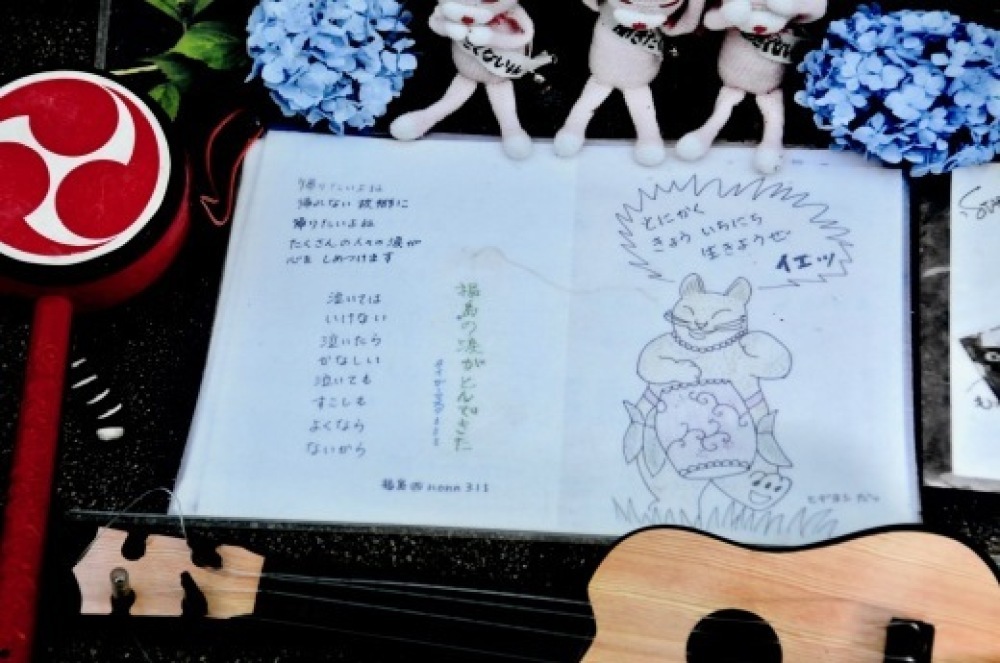 帰りたいよね
帰れない故郷に
帰りたいよね
たくさんの人々の涙が
心を しめつけます
泣いては
いけない
泣いたら
かなしい
泣いても
すこしも
よくなら
ないから
福島の涙がとんできた
福島 nonn 311
とにかく
きょう いちにち
生きようぜ
イエッ